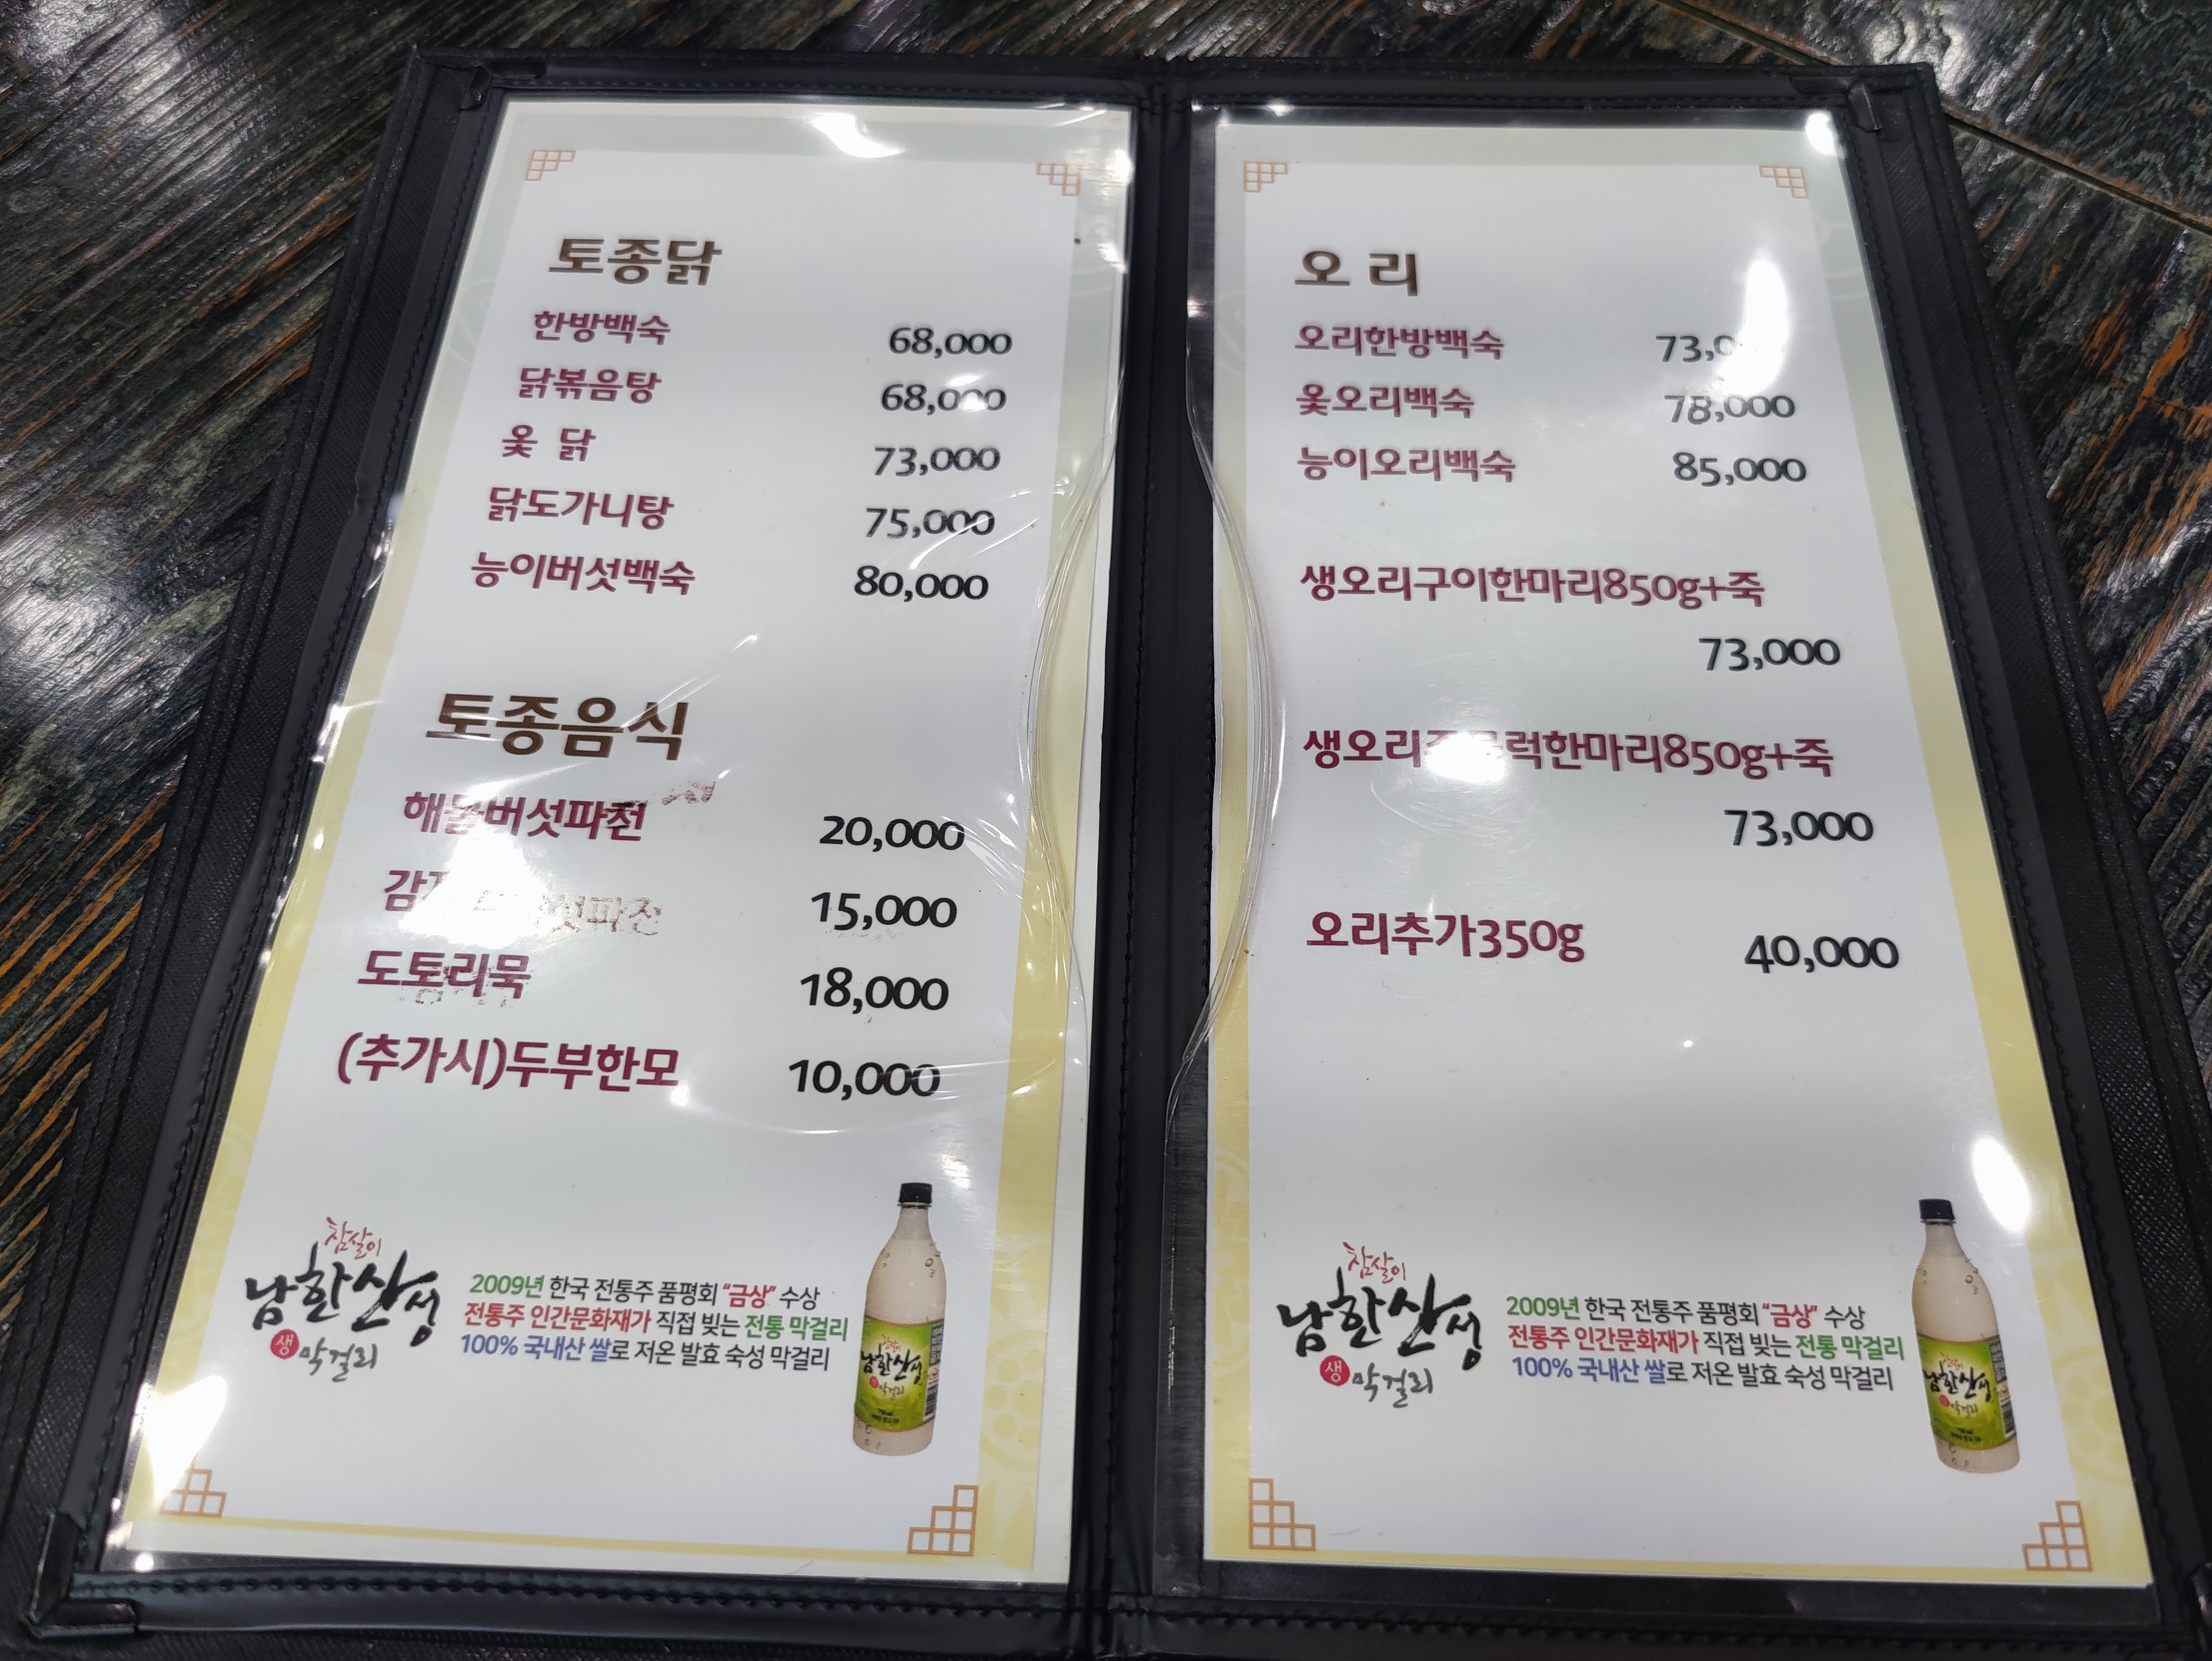 토종닭
한방백숙 68,000
닭볶음탕 68,000
옻 닭 73,000
닭도가니탕 75,000
능이버섯백숙 80,000
토종음식
해물버섯파전 20,000
15,000
도토리묵 18,000
(추가시)두부한모 10,000
참살이
남한산성
생 막걸리
2009년 한국 전통주 품평회 "금상" 수상
전통주 인간문화재가 직접 빚는 전통 막걸리
100% 국내산 쌀로 저온 발효 숙성 막걸리
남한산성
막걸리
오 리
오리한방백숙
옻오리백숙 78,000
능이오리백숙 85,000
생오리구이한마리850g+죽
73,000
생오리주물럭한마리850g+죽
73,000
오리추가350g 40,000
참살이
남한산성
생 막걸리
2009년 한국 전통주 품평회 "금상" 수상
전통주 인간문화재가 직접 빚는 전통 막걸리
100% 국내산 쌀로 저온 발효 숙성 막걸리
남한산성
막걸리